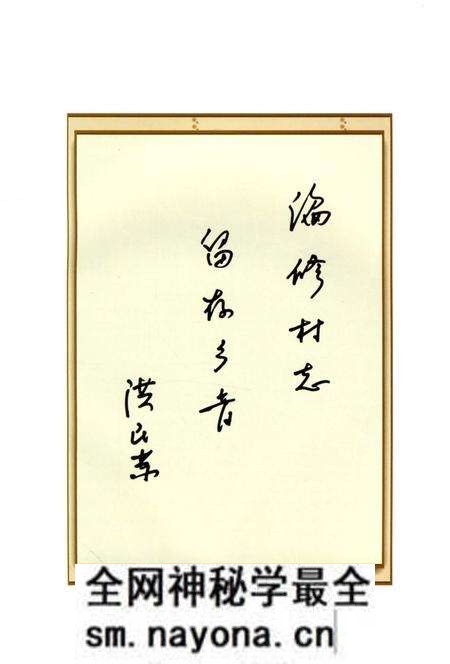 编修村志
留存乡音
洪民荣
全网神秘学最全
sm.nayona.cn